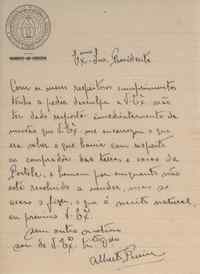 Exmo Snr. Presidente
Com os meus respeitosos cumprimentos
Venho a pedir desculpa a V. Exª não
ter dado resposta imediatamente da
missão que V. Exª me encarregou e que
era saber o que havia com respeito
os compradôs das terras e casas da
o homem por enquanto não
está resolvido a vender, mas se
acaso o fizer, o que é muito natural,
eu previno V. Exª.
Sem outro motivo
sou de V. Exª.
Alberto Pereira